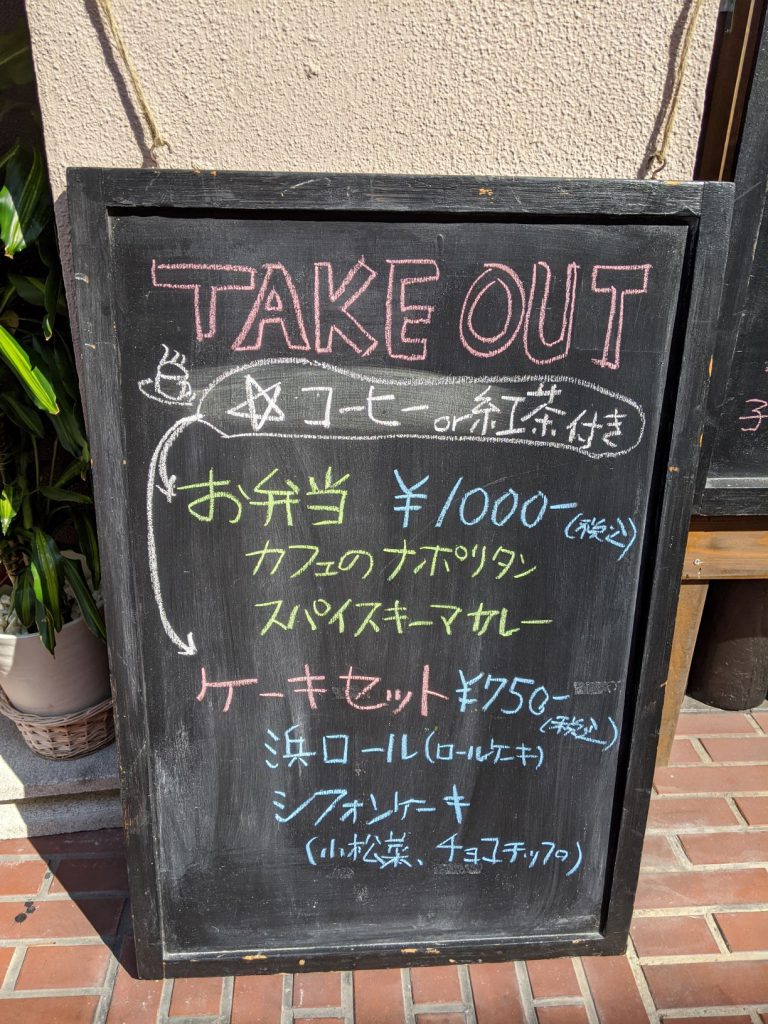 TAKE OUT
☆ コーヒー or 紅茶付き
お弁当 ¥1000-(税込)
カフェのナポリタン
スパイスキーマカレー
ケーキセット ¥750-(税込)
浜ロール(ロールケーキ)
シフォンケーキ
(小松菜、チョコチップ)
子